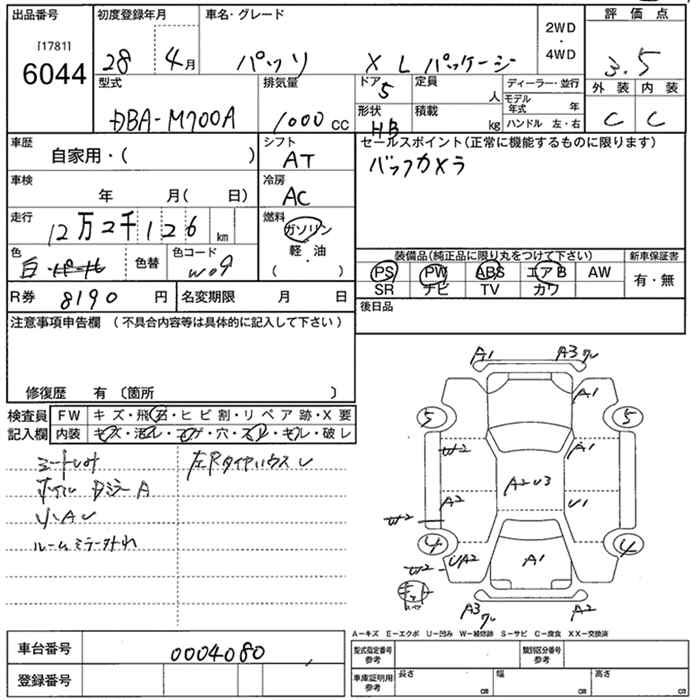 出品番号 初度登録年月 車名・グレード 2WD・4WD 評価点
[1781]
6044 28 年 4月 パッソ X L パッケージ 3.5
型式 排気量 ドア 5 定員 人 ディーラー・並行 外装 内装
DBA-M700A 1000cc 形状 HB 積載 kg モデル年式 年 C C
ハンドル 左・右
車歴 自家用・( ) シフト AT セールスポイント(正常に機能するものに限ります)
バックカメラ
車検 年 月( 日) 冷房 AC
走行 12万2千126 km 燃料 ガソリン 軽・油 ( ・ )
色 白 色替 色コード W09 装備品(純正品に限り丸をつけて下さい) 新車保証書
PS PW ABS エアB AW 有・無
SR ナビ TV カワ
R券 8190 円 名変期限 月 日 後日品
注意事項申告欄 (不具合内容等は具体的に記入して下さい)
修復歴 有 〔箇所 〕
検査員 FW キズ・飛石・ヒビ割・リペア跡・X要
記入欄 内装 キズ・汚レ・コゲ・穴・スレ・キレ・破レ
左RタイヤハウスU
A
小AU
ルームミラー外れ
A1 A3
A1
5 5
W2 A1
A2U3
A2 U1
W2
4 4
W2 UA2 A1
A3 A2
A-キズ E-エクボ U-凹み W-補修跡 S-サビ C-腐食 XX-交換済
車台番号 0004080 型式指定番号 参考 類別区分番号 参考
登録番号 車庫証明用 参考 長さ cm 幅 cm 高さ cm